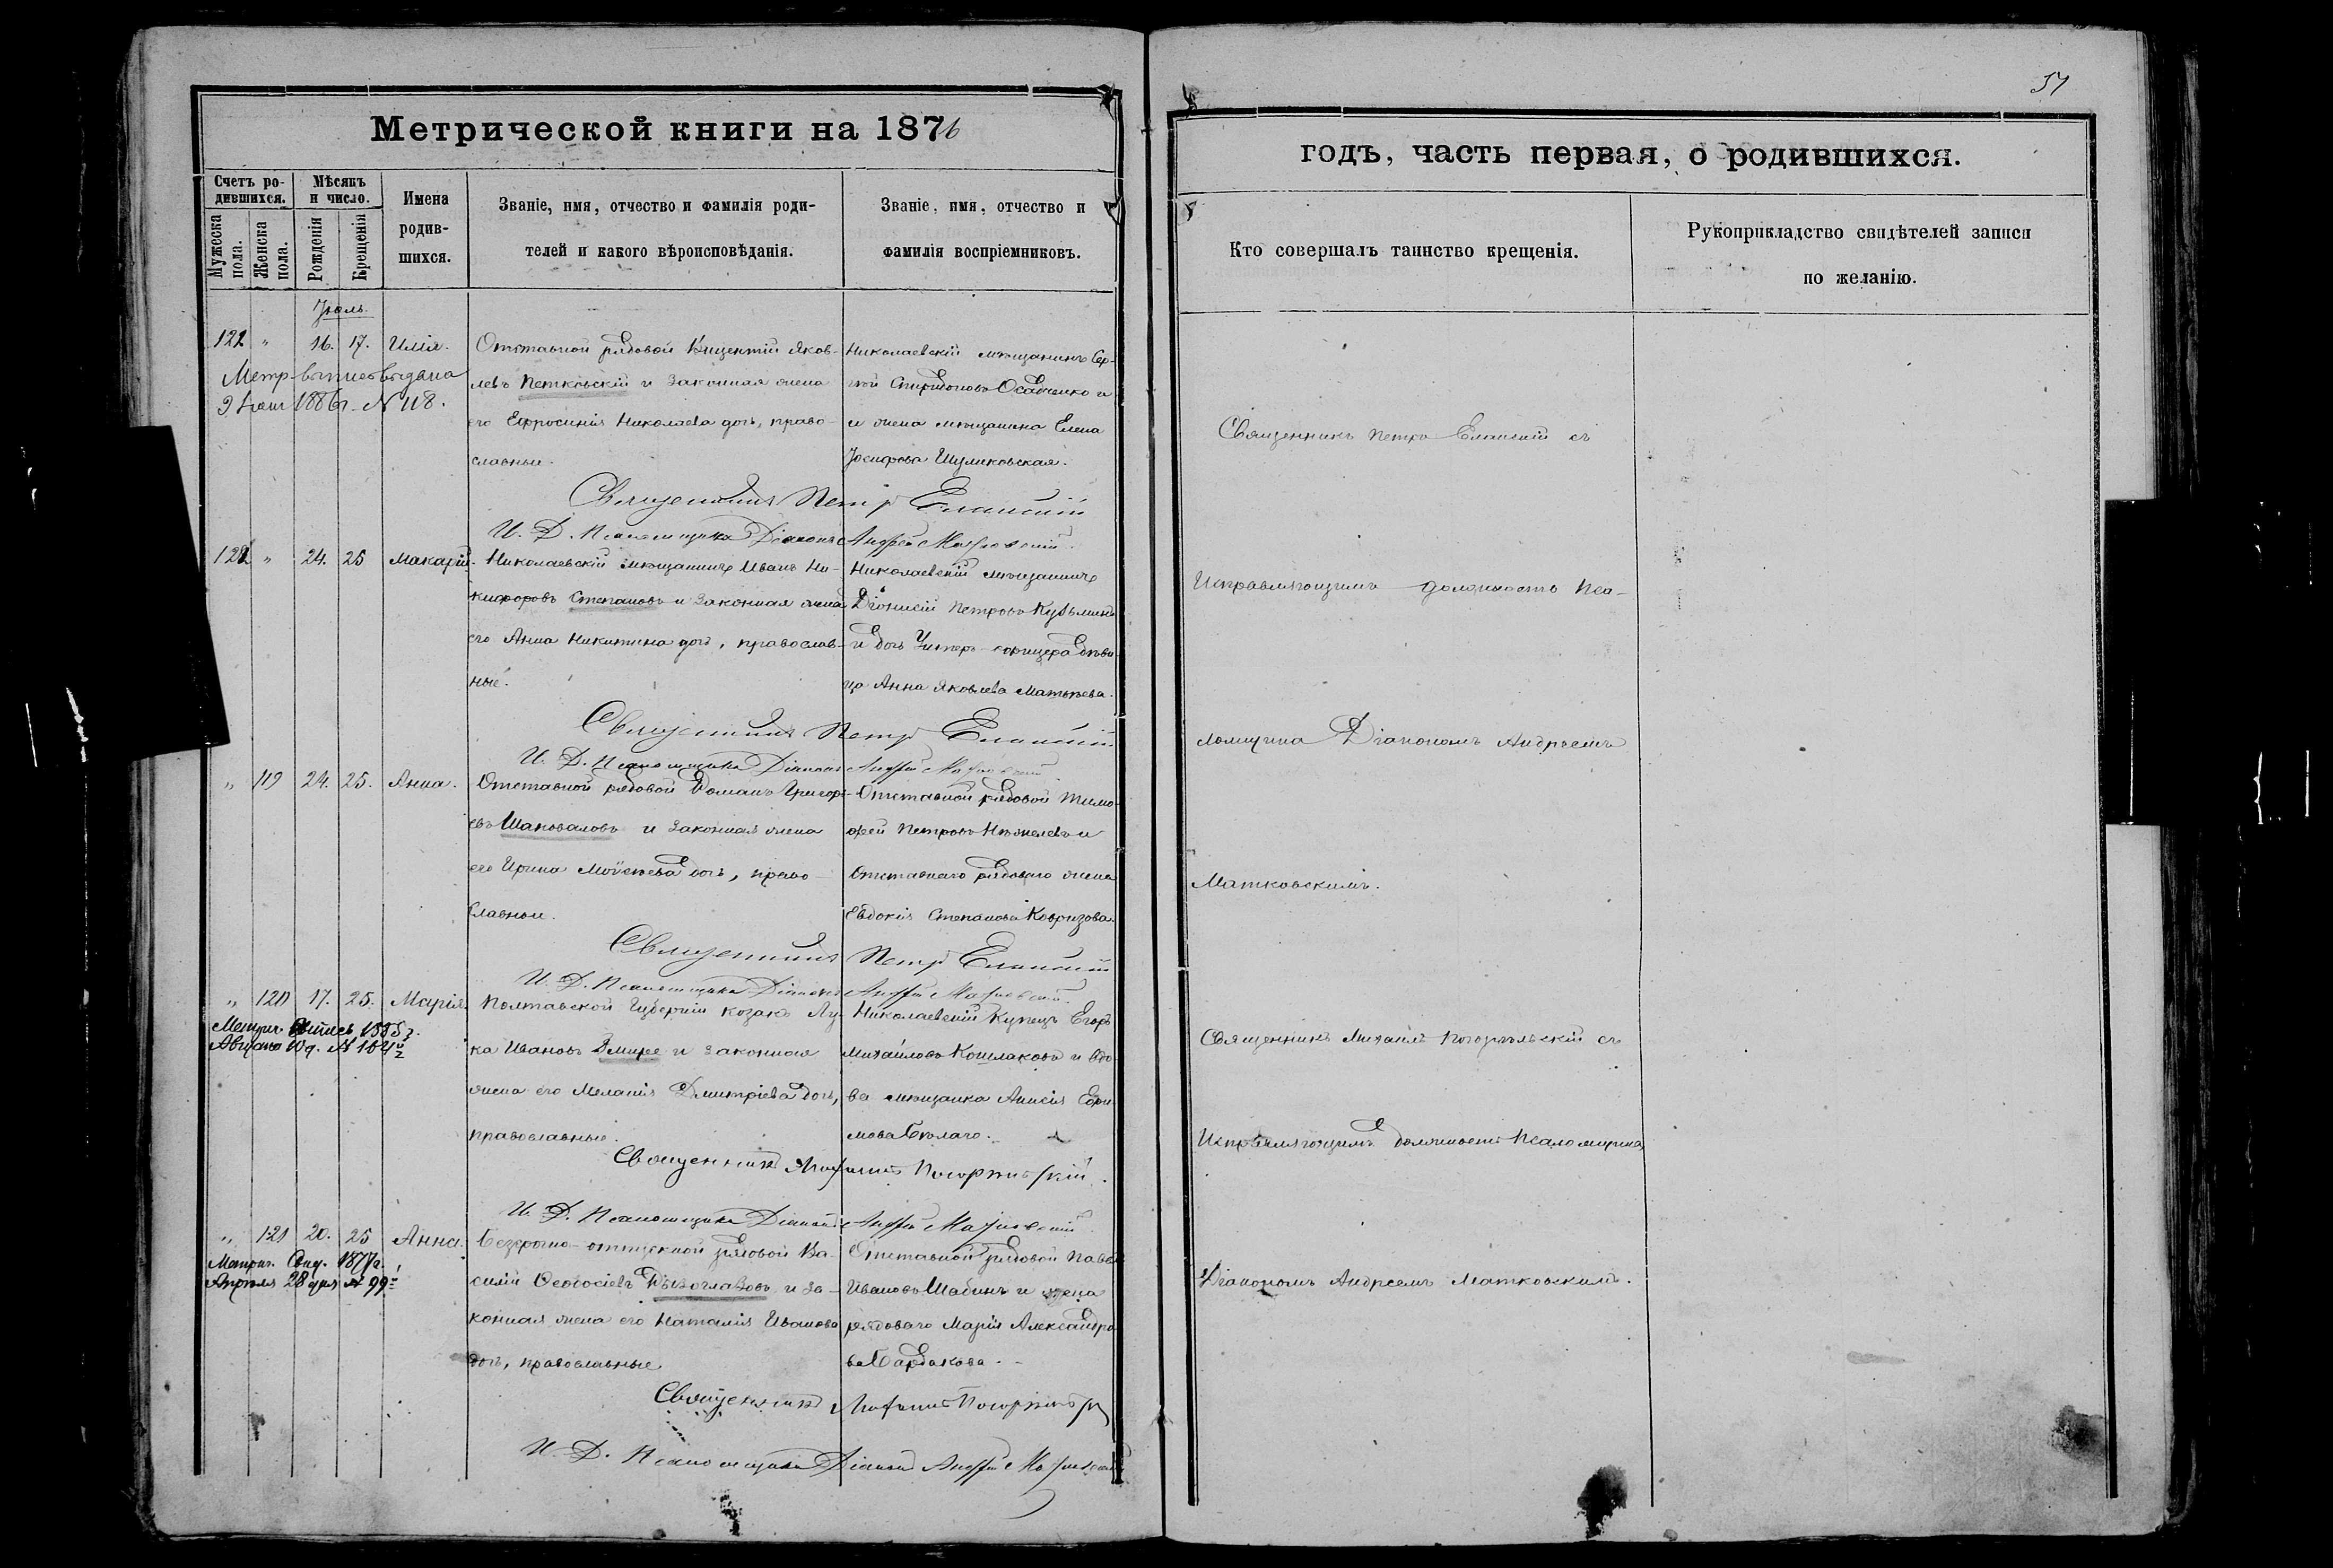 57
Метрической книги на 1876
годъ, часть первая, о родившихся.
Счетъ ро-
дившихся.
Мѣсяцъ
и число.
Мужеска
пола.
Женска
пола.
Рожденія
Крещенія
Имена
родив-
шихся.
Званіе, имя, отчество и фамилія роди-
телей и какого вѣроисповѣданія.
Званіе, имя, отчество и
фамилія воспріемниковъ.
Кто совершалъ таинство крещенія.
Рукоприкладство свидѣтелей записи
по желанію.
Іюль.
121 " 16. 17. Илія.
Метр. выпись выдана
9 1886 г. № 118.
Отставной рядовой Викентій Яков-
левъ и законная жена
его Ефросинія Николаева дочь, право-
славные.
Николаевскій мѣщанинъ Сер-
гѣй Спиридоновъ Осадченко и
и жена мѣщанина Елена
Іосифова Шумиковская.
Священникъ Петръ Еланскій
И. Д. Псаломщика Діаконъ Андрей Матковскій.
Священникъ Петръ Еланскій съ
122 " 24. 25 Макарій.
Николаевскій мѣщанинъ Иванъ Ни-
кифоровъ Степановъ и законная жена
его Анна Никитина дочь, православ-
ные.
Николаевскій мѣщанинъ
Діонисій Петровъ Кузьминъ
и дочь Унтеръ-офицера дѣви-
ца Анна Яковлева Матвѣева.
Священникъ Петръ Еланскій
И. Д. Псаломщика Діаконъ Андрей Матковскій
Исправляющимъ должность Пса-
ломщика Діакономъ Андреемъ
Матковскимъ.
" 119 24. 25. Анна.
Отставной рядовой Романъ Григорь-
евъ Шаповаловъ и законная жена
его Ирина Моисеева дочь, право-
славные.
Отставной рядовой Тимо-
фей Петровъ и
отставнаго рядоваго жена
Евдокія Степанова
Священникъ Петръ Еланскій
И. Д. Псаломщика Діаконъ Андрей Матковскій.
" 120 17. 25. Марія.
Метрич. Выпись 1885 г.
Полтавской Губерніи козакъ Лу-
ка Ивановъ и законная
жена его Меланія Дмитріева дочь,
православные.
Николаевскій Купецъ Егоръ
Михайловъ Кошлаковъ и вдо-
ва мѣщанка Анисія Ефи-
мова Бѣлаго.
Священникъ Погорѣльскій.
И. Д. Псаломщика Діаконъ Андрей Матковскій
Священникъ Михаилъ Погорѣльскій съ
Исправляющимъ должность Псаломщика
Діакономъ Андреемъ Матковскимъ.
" 121 20. 25 Анна.
Метрич. Свид. 1877 г.
Апрѣля 28 дня № 99
Безсрочно-отпускной рядовой Ва-
силій Ѳеодосіевъ и за-
конная жена его Наталія Иванова
дочь, православные
Отставной рядовой Павелъ
Ивановъ Шабинъ и жена
рядоваго Марія Александро-
ва Бардакова.
Священникъ Погорѣльскій
И. Д. Псаломщика Діаконъ Андрей Матковскій